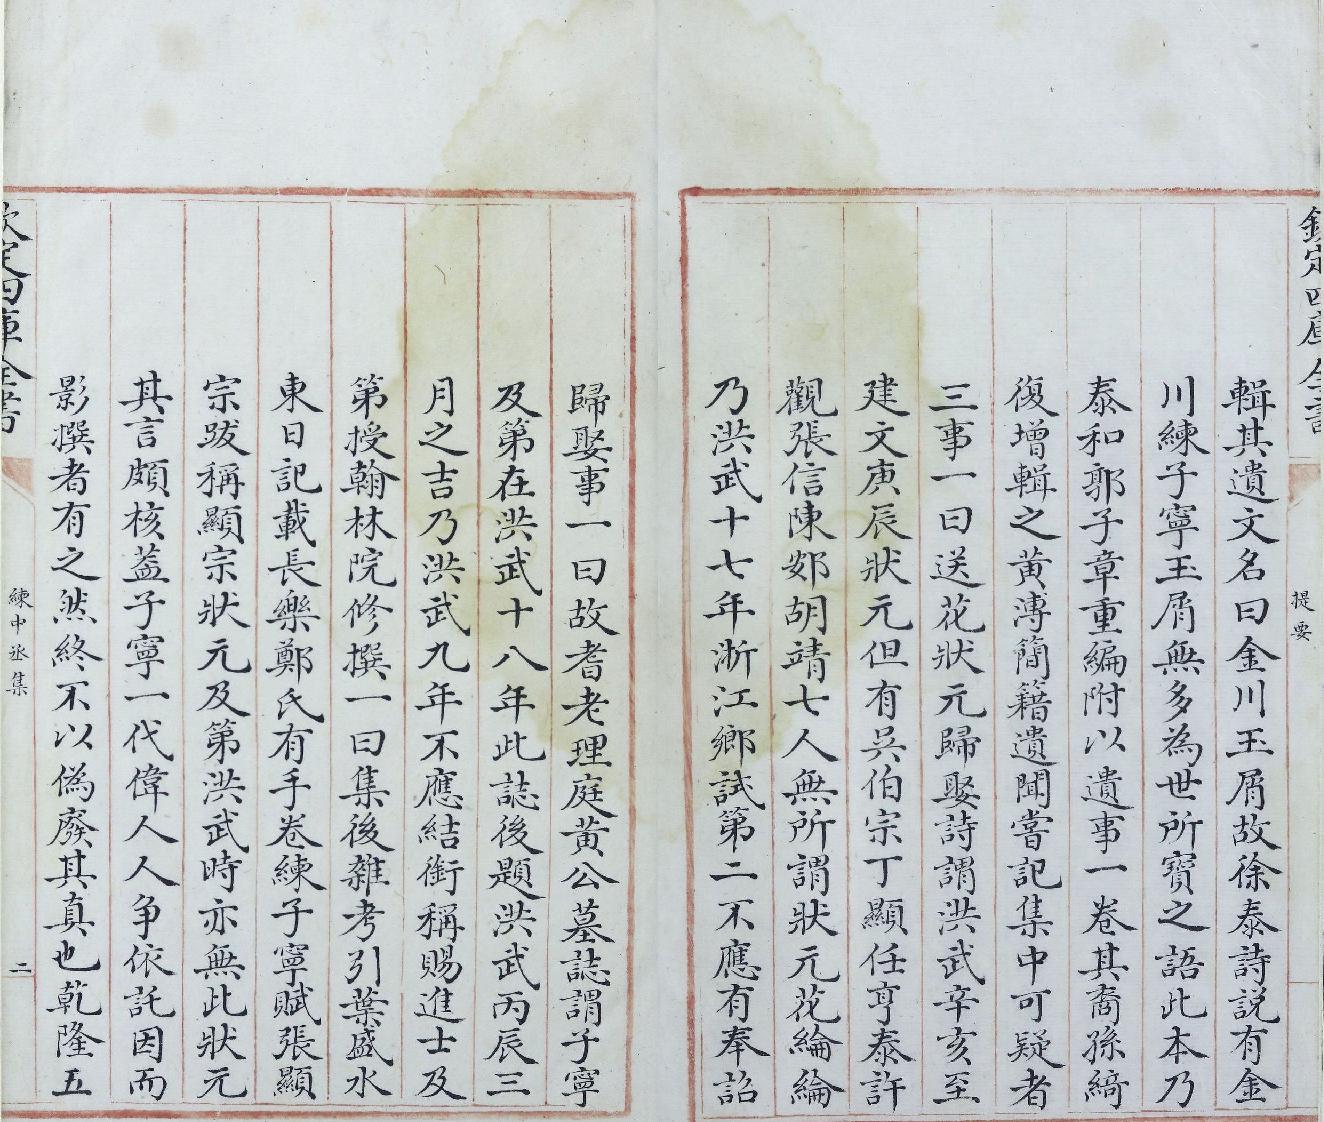 欽定四庫全書
提要
輯其遺文名曰金川玉屑故徐泰詩説有金
川練子寧玉屑無多為世所寳之語此本乃
泰和郭子章重編附以遺事一卷其裔孫綺
復增輯之黄溥簡籍遺聞嘗記集中可疑者
三事一曰送花狀元歸娶詩謂洪武辛亥至
建文庚辰狀元但有吳伯宗丁顯任亨泰許
觀張信陳䢿胡靖七人無所謂狀元花綸綸
乃洪武十七年浙江鄉試第二不應有奉詔
歸娶事一曰故耆老理庭黄公墓誌謂子寧
及第在洪武十八年此誌後題洪武丙辰三
月之吉乃洪武九年不應結銜稱賜進士及
第授翰林院修撰一曰集後雜考引葉盛水
東日記載長樂鄭氏有手卷練子寧賦張顯
宗跋稱顯宗狀元及第洪武時亦無此狀元
其言頗核葢子寧一代偉人人争依託因而
影撰者有之然終不以偽廢其真也乾隆五
欽定四庫全書
練中丞集
二